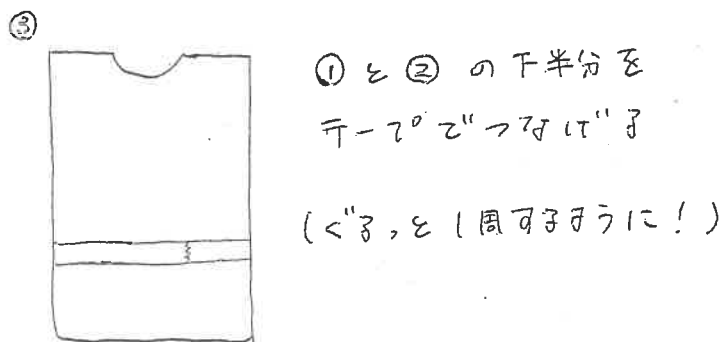 ③
①と②の下半分を
テープでつなげる
(ぐるっと1周するように!)